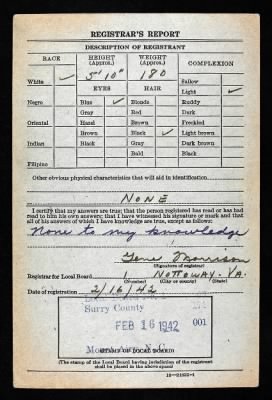 REGISTRAR'S REPORT
DESCRIPTION OF REGISTRANT
RACE HEIGHT (Approx.) WEIGHT (Approx.) COMPLEXION
White ✓ 5' 10" 180 Sallow
EYES HAIR Light ✓
Negro Blue ✓ Blonde Ruddy
Gray Red Dark
Oriental Hazel Brown Freckled
Brown Black ✓ Light brown
Indian Black Gray Dark brown
Bald Black
Filipino
Other obvious physical characteristics that will aid in identification
NONE
I certify that my answers are true; that the person registered has read or has had
read to him his own answers; that I have witnessed his signature or mark and that
all of his answers of which I have knowledge are true, except as follows:
None to my knowledge
Gene Morrison
(Signature of registrar)
Registrar for Local Board 1 NOTTOWAY - VA.
(Number) (City or county) (State)
Date of registration 2/16/42
Surry County
FEB 16 1942 001
N. C.
(STAMP OF LOCAL BOARD)
(The stamp of the Local Board having jurisdiction of the registrant
shall be placed in the above space)